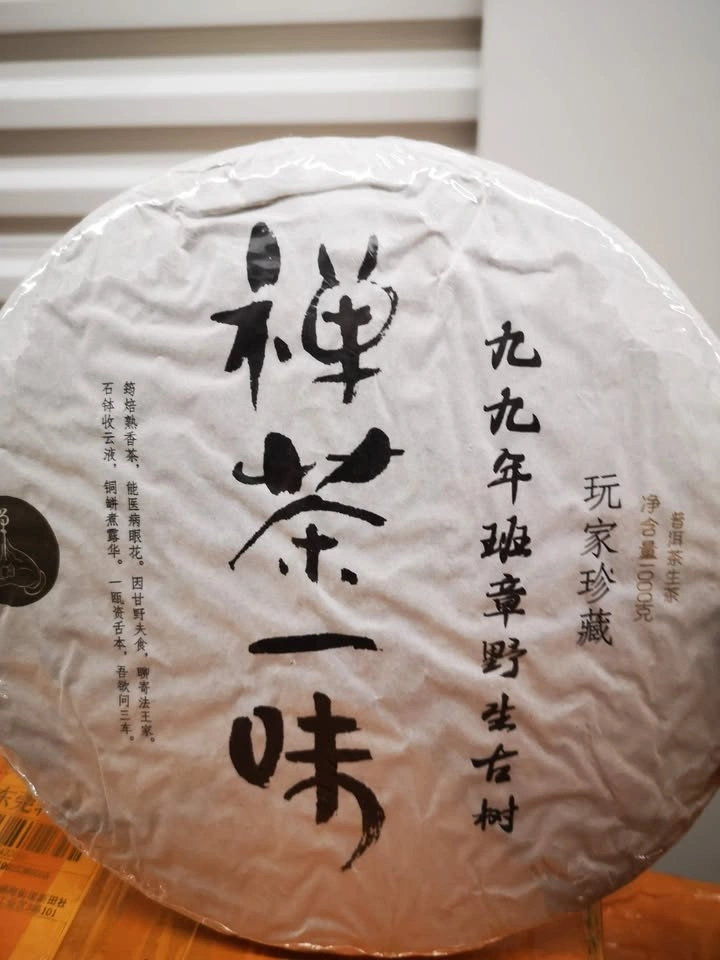 普洱茶生茶
净含量1000克
玩家珍藏
九九年班章野生古树
禅茶一味
筠焙熟香茶，能医病眼花。因甘野夫食，聊寄法王家。
石钵收云液，铜缾煮露华。一瓯资舌本，吾欲问三车。
东莞
101